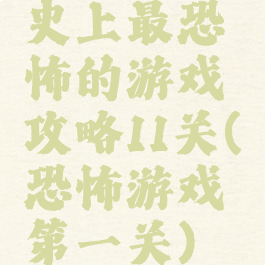 史上最恐
怖的游戏
攻略11关(
恐怖游戏
第一关)